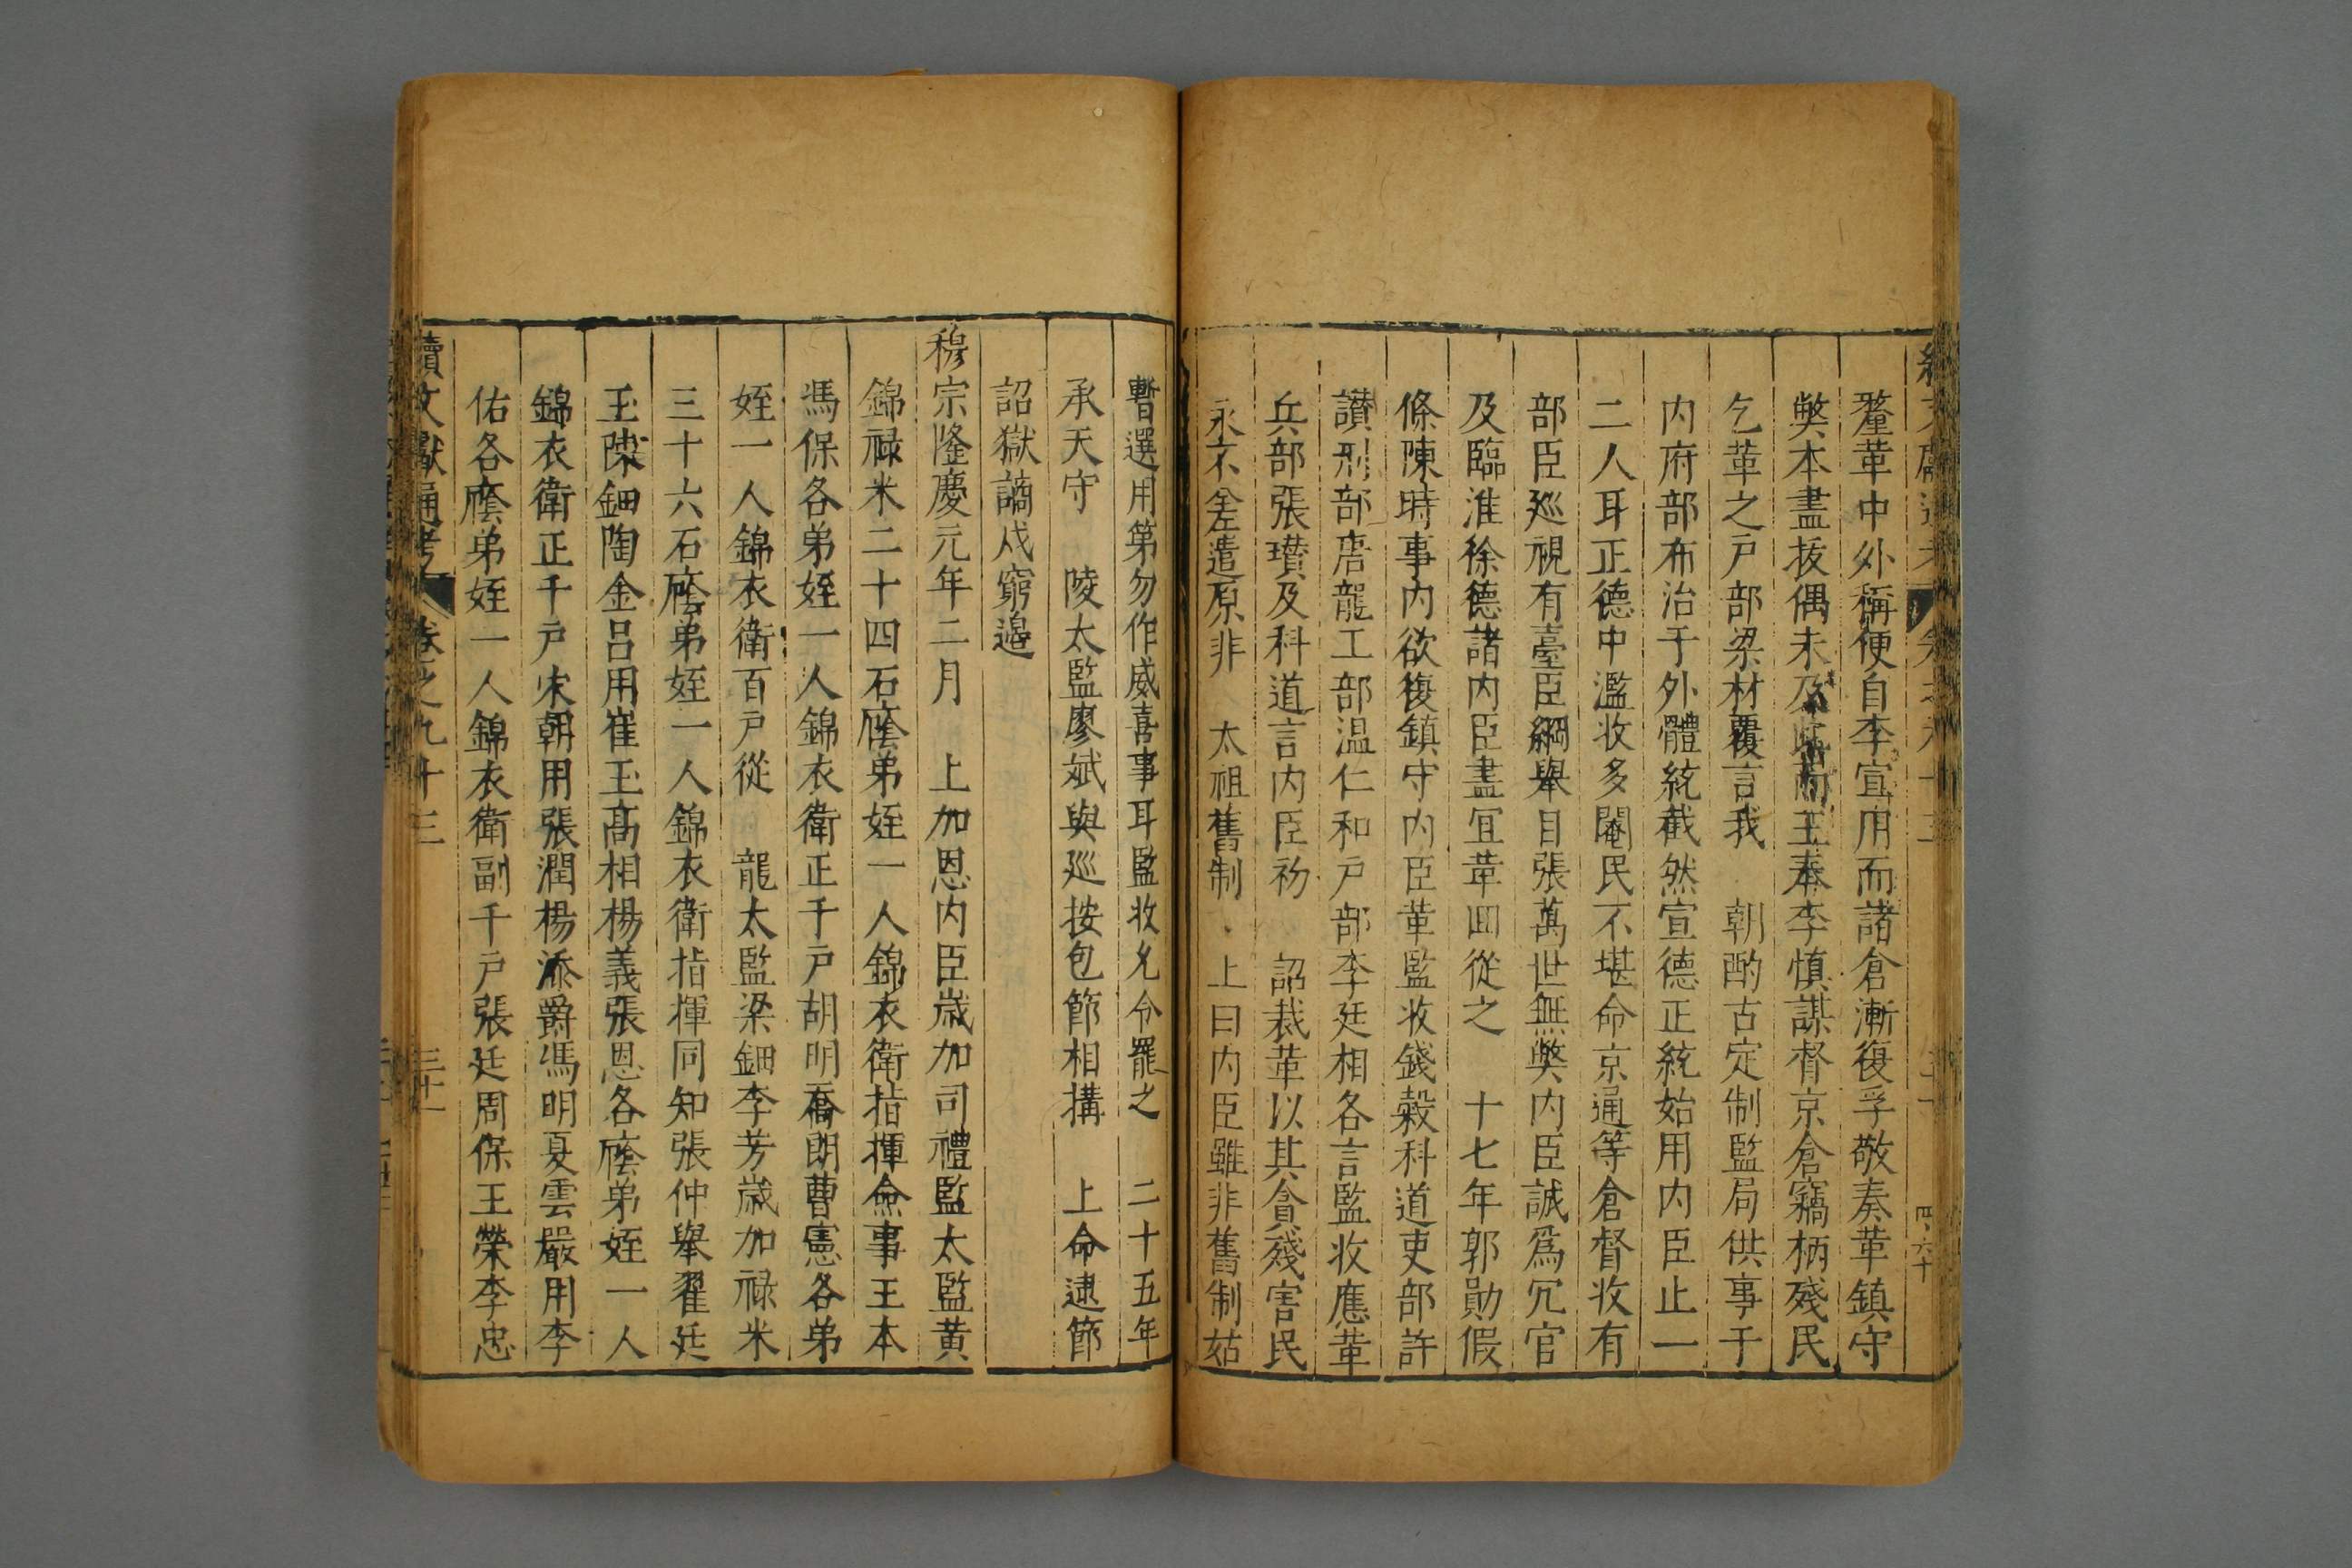 釐革中外稱便自李宜用而諸倉漸復孚敬奏革鎮守
獘本盡拔偶未及 而王奉李慎謀督京倉竊柄殘民
乞革之戶部梁材覆言我 朝酌古定制監局供事于
内府部布治于外體統截然宣德正統始用内臣止一
二人耳正德中濫收多閹民不堪命京通等倉督收有
部臣廵視有臺臣綱舉目張萬世無獘内臣誠爲冗官
及臨淮徐德諸内臣盡冝革回從之 十七年郭勛假
條陳時事内欲復鎮守内臣革監收錢榖科道吏部許
讃刑部唐龍工部温仁和戶部李廷相各言監收應革
兵部張瓚及科道言内臣初 詔裁革以其貪殘害民
永不差遣原非 太祖舊制 上曰内臣雖非舊制姑
暫選用第勿作威喜事耳監收允令罷之 二十五年
承天守 陵太監廖斌與廵按包節相搆 上命逮節
詔獄謫戍窮邉
穆宗隆慶元年二月 上加恩内臣歲加司禮監太監黄
錦禄米二十四石廕弟姪一人錦衣衛指揮僉事王本
馮保各弟姪一人錦衣衛正千戶胡明喬朗曹憲各弟
姪一人錦衣衛百戶從 龍太監梁鈿李芳歲加禄米
三十六石廕弟姪一人錦衣衛指揮同知張仲舉翟廷
玉陳鈿陶金吕用崔玉髙相楊義張恩各廕弟姪一人
錦衣衛正千戶宋朝用張潤楊添爵馮明夏雲嚴用李
佑各廕弟姪一人錦衣衛副千戶張廷周保王榮李忠
續文獻通考 卷之九十三 三十一